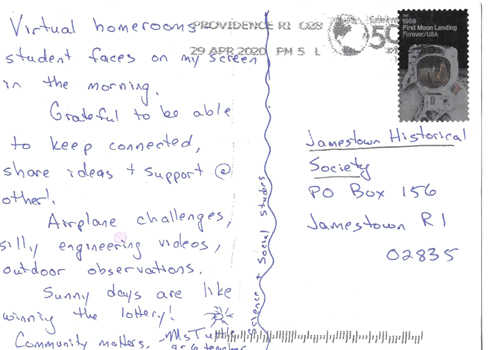 Virtual homerooms
student faces on my screen
in the morning.
Grateful to be able
to keep connected,
share ideas + support @
other!
Airplane challenges,
silly engineering videos,
outdoor observations.
Sunny days are like
winning the lottery!
Community matters.
science + Social Studies
PROVIDENCE RI 028
29 APR 2020 PM 5 L
50
1969
First Moon Landing
Forever/USA
Jamestown Historical
Society
PO Box 156
Jamestown RI
02835